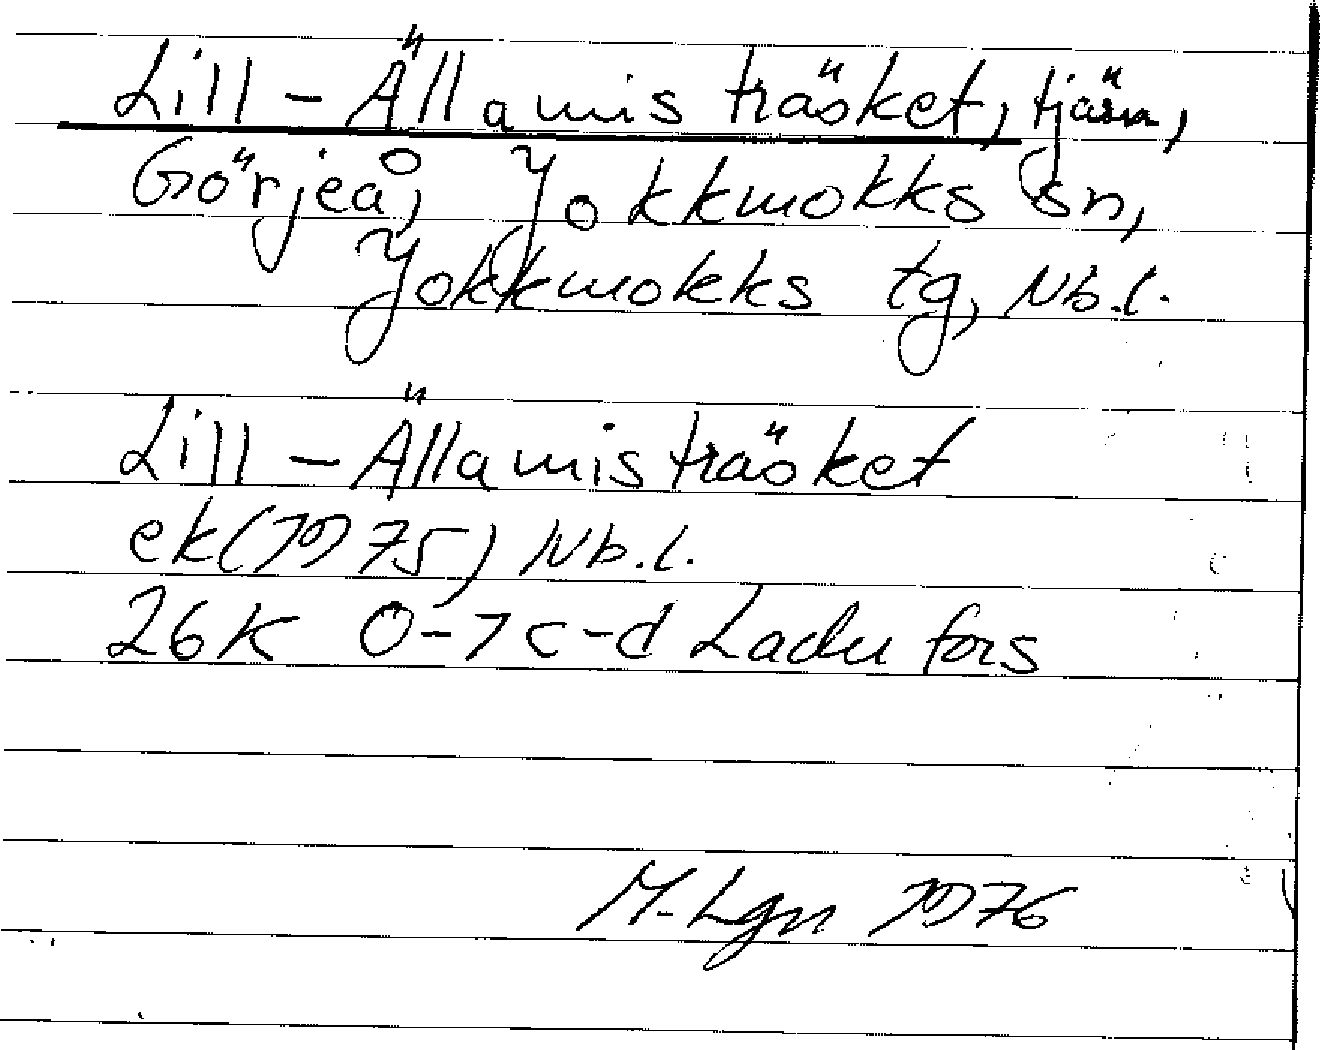 Lill-Ällamisträsket, tjärn,
Görjeå, Jokkmokks sn,
Jokkmokks tg, Nb.l.
Lill-Ällamisträsket
ek(1975) Nb.l.
26K 0-7c-d Ladufors
M-Lgn 1976